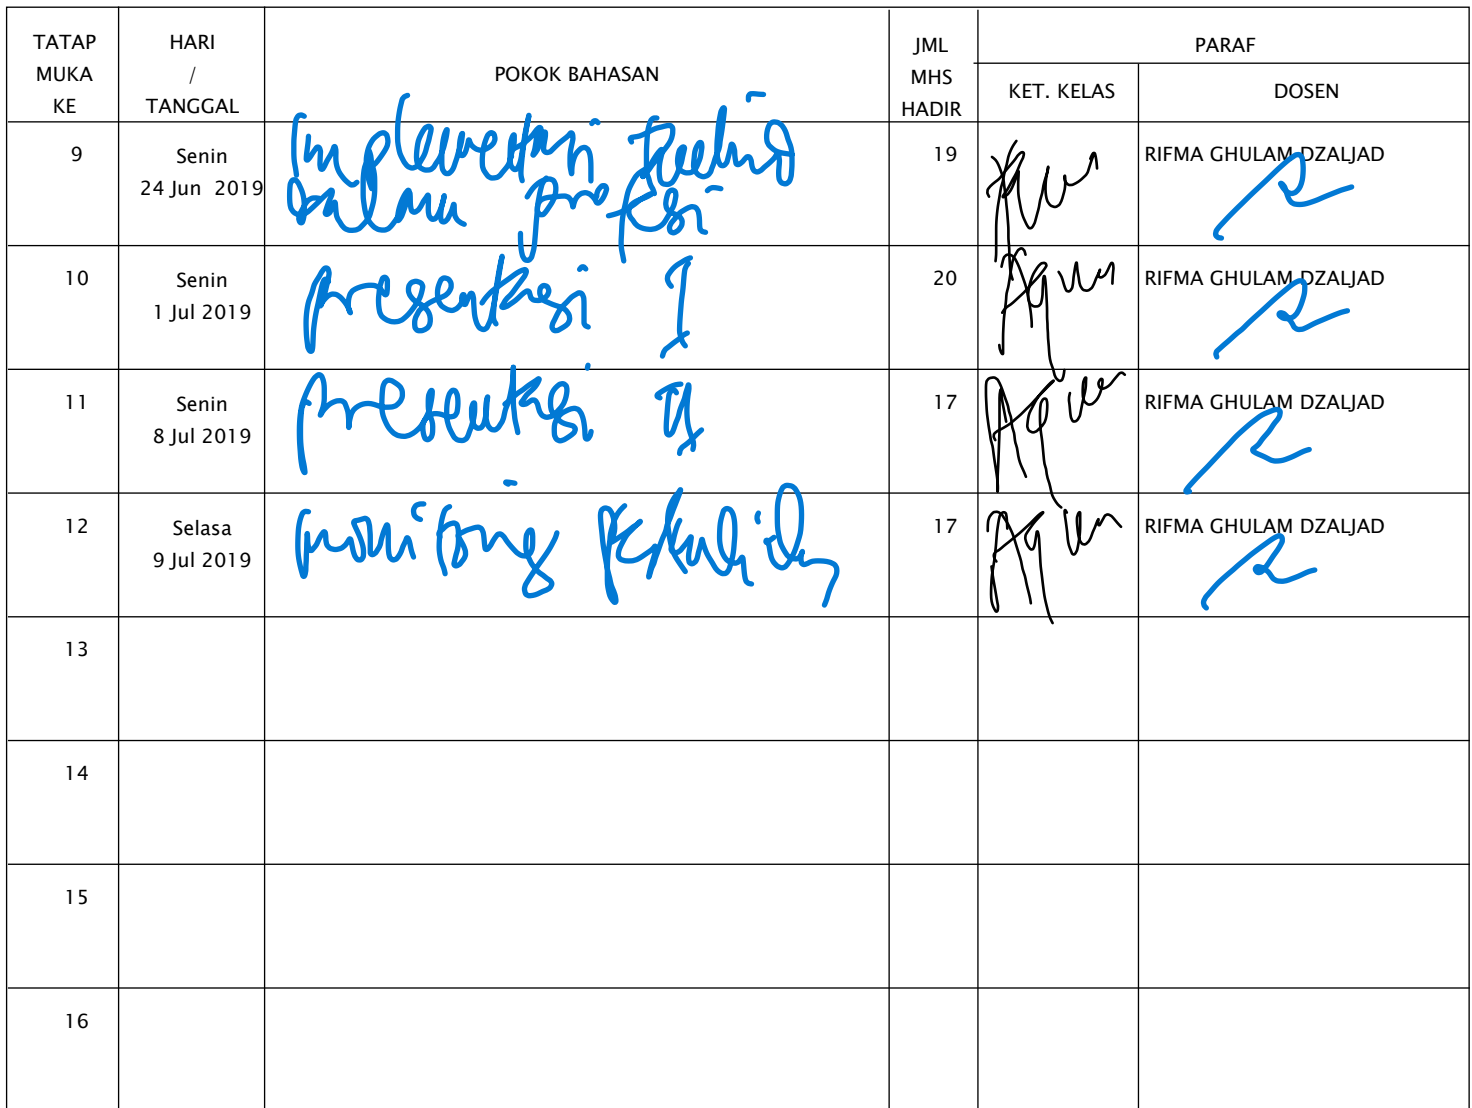 TATAP MUKA KE HARI / TANGGAL POKOK BAHASAN JML MHS HADIR PARAF
KET. KELAS DOSEN
9 Senin 24 Jun 2019 Implementasi dalam profesi 19 RIFMA GHULAM DZALJAD
10 Senin 1 Jul 2019 presentasi I 20 Agus RIFMA GHULAM DZALJAD
11 Senin 8 Jul 2019 presentasi II 17 RIFMA GHULAM DZALJAD
12 Selasa 9 Jul 2019 monitoring perkuliahan 17 RIFMA GHULAM DZALJAD
13
14
15
16